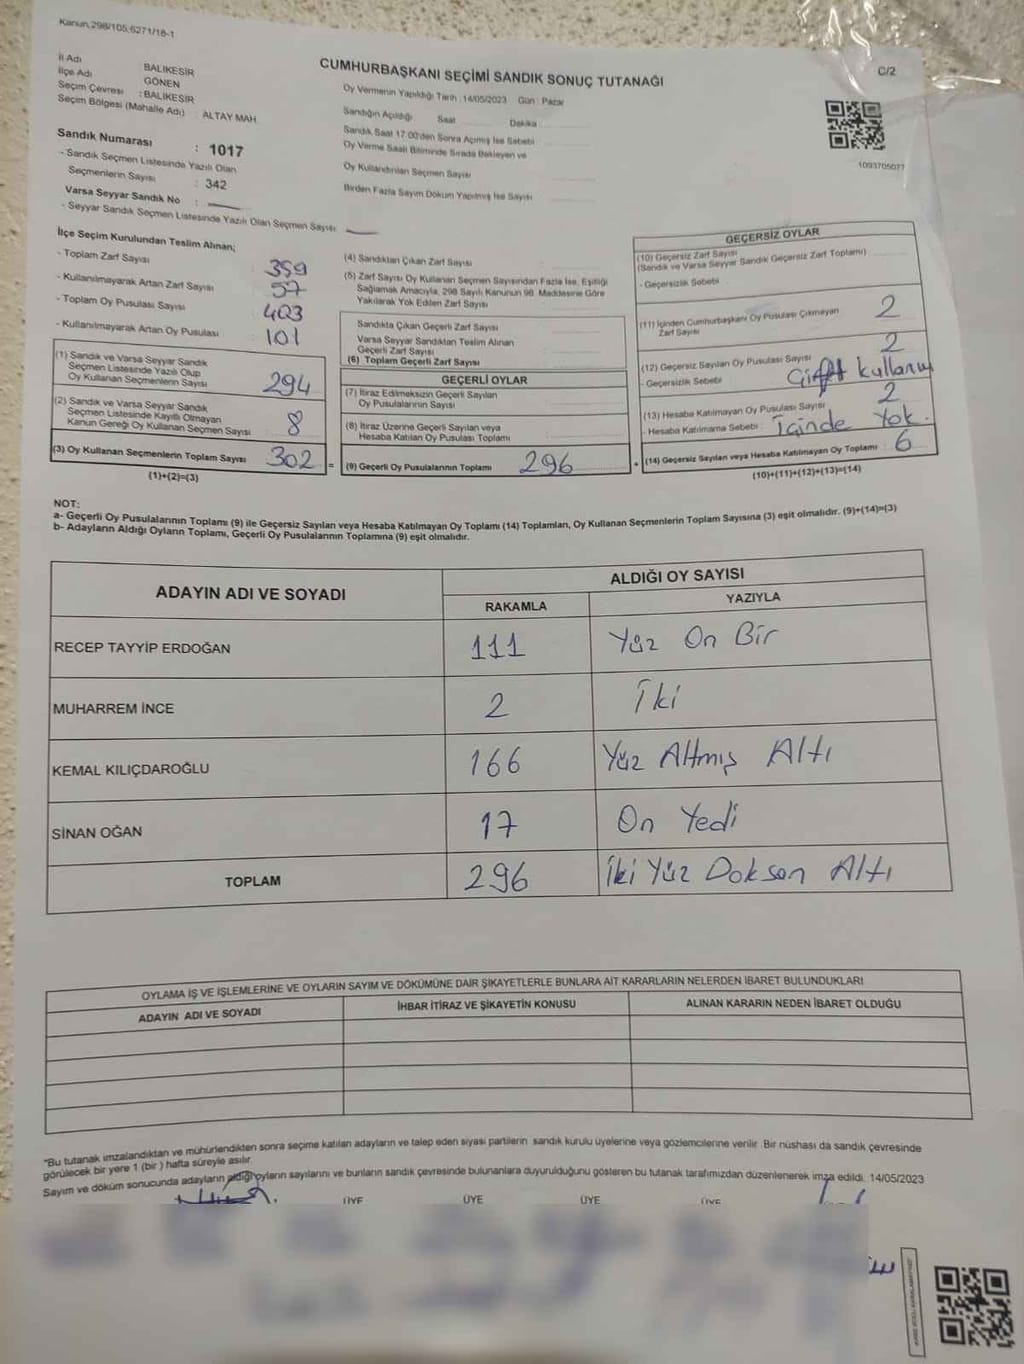 Kanun,298/105,6271/18-1
CUMHURBAŞKANI SEÇİMİ SANDIK SONUÇ TUTANAĞI
C/2
İl Adı BALIKESİR
İlçe Adı GÖNEN
Seçim Çevresi : BALIKESİR
Seçim Bölgesi (Mahalle Adı) : ALTAY MAH.
Oy Vermenin Yapıldığı Tarih : 14/05/2023 Gün : Pazar
Sandığın Açıldığı Saat Dakika
Sandık Saat 17:00'den Sonra Açılmış İse Sebebi
Oy Verme Saati Bitiminde Sırada Bekleyen ve
Oy Kullandırılan Seçmen Sayısı
Birden Fazla Sayım Döküm Yapılmış İse Sayısı
1093705077
Sandık Numarası : 1017
- Sandık Seçmen Listesinde Yazılı Olan
Seçmenlerin Sayısı : 342
Varsa Seyyar Sandık No :
- Seyyar Sandık Seçmen Listesinde Yazılı Olan Seçmen Sayısı:
İlçe Seçim Kurulundan Teslim Alınan;
- Toplam Zarf Sayısı : 359
- Kullanılmayarak Artan Zarf Sayısı : 57
- Toplam Oy Pusulası Sayısı : 403
- Kullanılmayarak Artan Oy Pusulası : 101
(1) Sandık ve Varsa Seyyar Sandık
Seçmen Listesinde Yazılı Olup
Oy Kullanan Seçmenlerin Sayısı 294
(2) Sandık ve Varsa Seyyar Sandık
Seçmen Listesinde Kayıtlı Olmayan
Kanun Gereği Oy Kullanan Seçmen Sayısı 8
(3) Oy Kullanan Seçmenlerin Toplam Sayısı 302 =
(1)+(2)=(3)
(4) Sandıktan Çıkan Zarf Sayısı
(5) Zarf Sayısı Oy Kullanan Seçmen Sayısından Fazla İse, Eşitliği
Sağlamak Amacıyla, 298 Sayılı Kanunun 98. Maddesine Göre
Yakılarak Yok Edilen Zarf Sayısı
Sandıkta Çıkan Geçerli Zarf Sayısı
Varsa Seyyar Sandıktan Teslim Alınan
Geçerli Zarf Sayısı
(6) Toplam Geçerli Zarf Sayısı
GEÇERLİ OYLAR
(7) İtiraz Edilmeksizin Geçerli Sayılan
Oy Pusulalarının Sayısı
(8) İtiraz Üzerine Geçerli Sayılan veya
Hesaba Katılan Oy Pusulası Toplamı
(9) Geçerli Oy Pusulalarının Toplamı 296 +
GEÇERSİZ OYLAR
(10) Geçersiz Zarf Sayısı
(Sandık ve Varsa Seyyar Sandık Geçersiz Zarf Toplamı)
- Geçersizlik Sebebi :
(11) İçinden Cumhurbaşkanı Oy Pusulası Çıkmayan
Zarf Sayısı 2
(12) Geçersiz Sayılan Oy Pusulası Sayısı 2
- Geçersizlik Sebebi : Çift kullanım
(13) Hesaba Katılmayan Oy Pusulası Sayısı 2
- Hesaba Katılmama Sebebi : İçinde Yok.
(14) Geçersiz Sayılan veya Hesaba Katılmayan Oy Toplamı : 6
(10)+(11)+(12)+(13)=(14)
NOT:
a- Geçerli Oy Pusulalarının Toplamı (9) ile Geçersiz Sayılan veya Hesaba Katılmayan Oy Toplamı (14) Toplamları, Oy Kullanan Seçmenlerin Toplam Sayısına (3) eşit olmalıdır. (9)+(14)=(3)
b- Adayların Aldığı Oyların Toplamı, Geçerli Oy Pusulalarının Toplamına (9) eşit olmalıdır.
ADAYIN ADI VE SOYADI ALDIĞI OY SAYISI
RAKAMLA YAZIYLA
RECEP TAYYİP ERDOĞAN 111 Yüz On Bir
MUHARREM İNCE 2 İki
KEMAL KILIÇDAROĞLU 166 Yüz Altmış Altı
SİNAN OĞAN 17 On Yedi
TOPLAM 296 İki Yüz Doksan Altı
OYLAMA İŞ VE İŞLEMLERİNE VE OYLARIN SAYIM VE DÖKÜMÜNE DAİR ŞİKAYETLERLE BUNLARA AİT KARARLARIN NELERDEN İBARET BULUNDUKLARI
ADAYIN ADI VE SOYADI İHBAR İTİRAZ VE ŞİKAYETİN KONUSU ALINAN KARARIN NEDEN İBARET OLDUĞU
"Bu tutanak imzalandıktan ve mühürlendikten sonra seçime katılan adayların ve talep eden siyasi partilerin sandık kurulu üyelerine veya gözlemcilerine verilir. Bir nüshası da sandık çevresinde
görülecek bir yere 1 (bir) hafta süreyle asılır.
Sayım ve döküm sonucunda adayların aldığı oyların sayılarını ve bunların sandık çevresinde bulunanlara duyurulduğunu gösteren bu tutanak tarafımızdan düzenlenerek imza edildi. 14/05/2023
ÜYE ÜYE ÜYE ÜYE